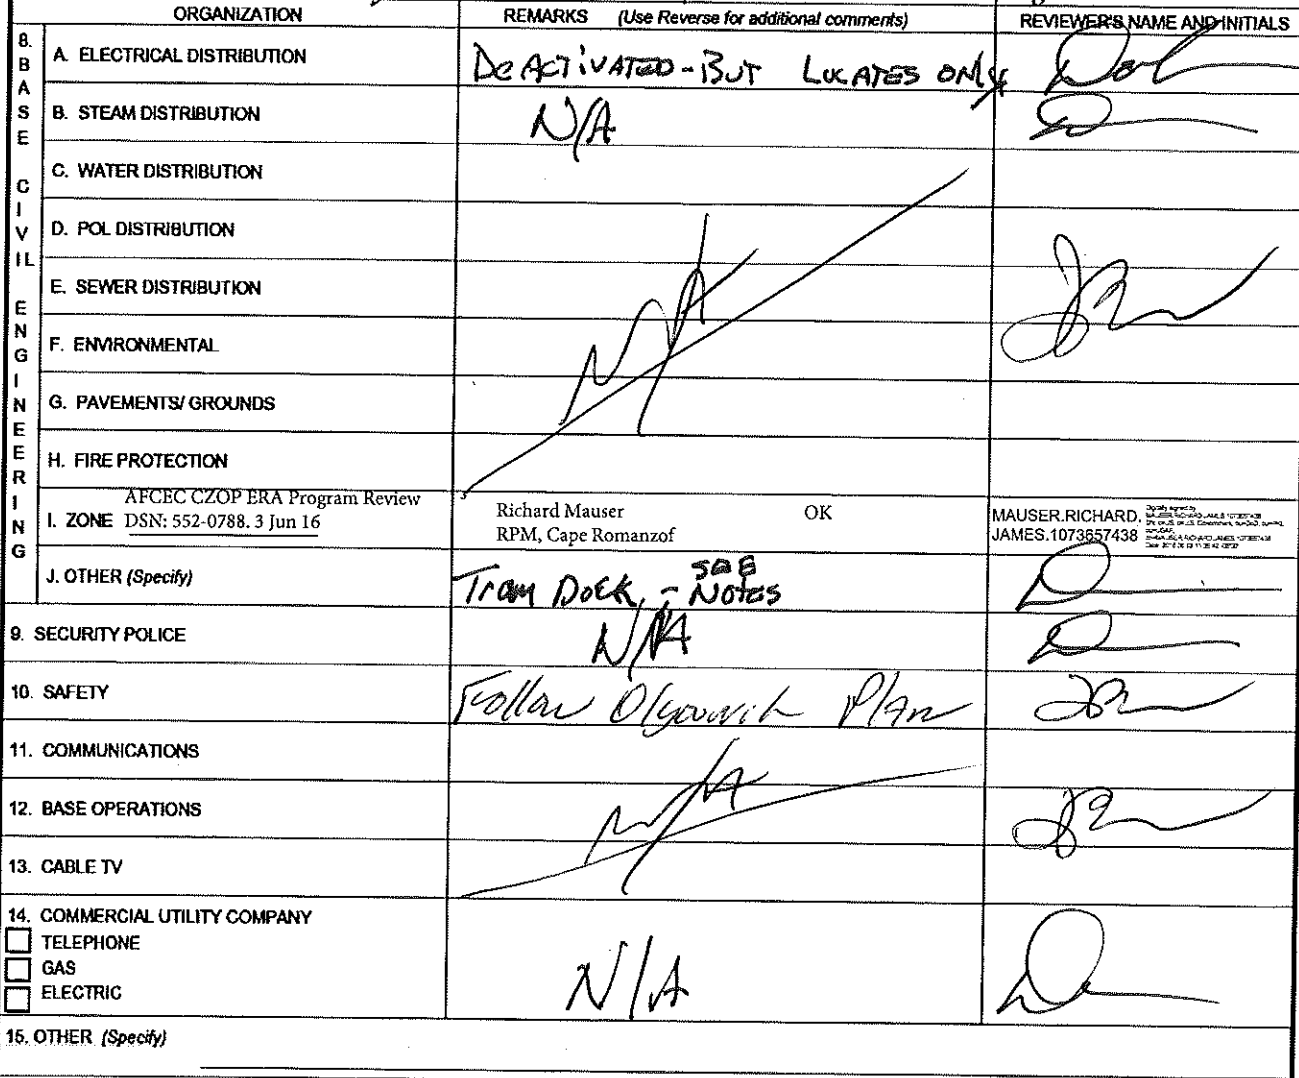 ORGANIZATION REMARKS (Use Reverse for additional comments) REVIEWER'S NAME AND INITIALS
8. BASE CIVIL ENGINEERING
A. ELECTRICAL DISTRIBUTION DEACTIVATED - BUT LOCATES ONLY
B. STEAM DISTRIBUTION N/A
C. WATER DISTRIBUTION
D. POL DISTRIBUTION
E. SEWER DISTRIBUTION
N/A
F. ENVIRONMENTAL
G. PAVEMENTS/ GROUNDS
H. FIRE PROTECTION
AFCEC CZOP ERA Program Review
I. ZONE DSN: 552-0788. 3 Jun 16
Richard Mauser OK
RPM, Cape Romanzof
MAUSER.RICHARD.
JAMES.1073657438
J. OTHER (Specify) Tram Dock, - SEE Notes
9. SECURITY POLICE N/A
10. SAFETY Follow Plan
11. COMMUNICATIONS
12. BASE OPERATIONS N/A
13. CABLE TV
14. COMMERCIAL UTILITY COMPANY
TELEPHONE
GAS N/A
ELECTRIC
15. OTHER (Specify)